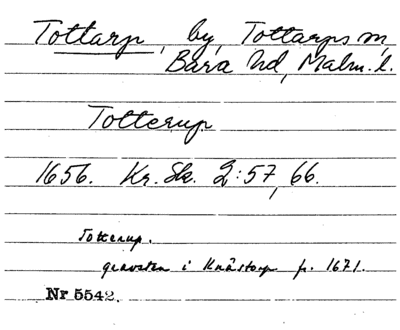 Tottarp, by, Tottarps sn,
Bara hd, Malm. l.
Totterup
1656. Kr. Sk. 2:57, 66.
Totterup.
gravsten i Knästorp fr. 1671.
Nr 5542.